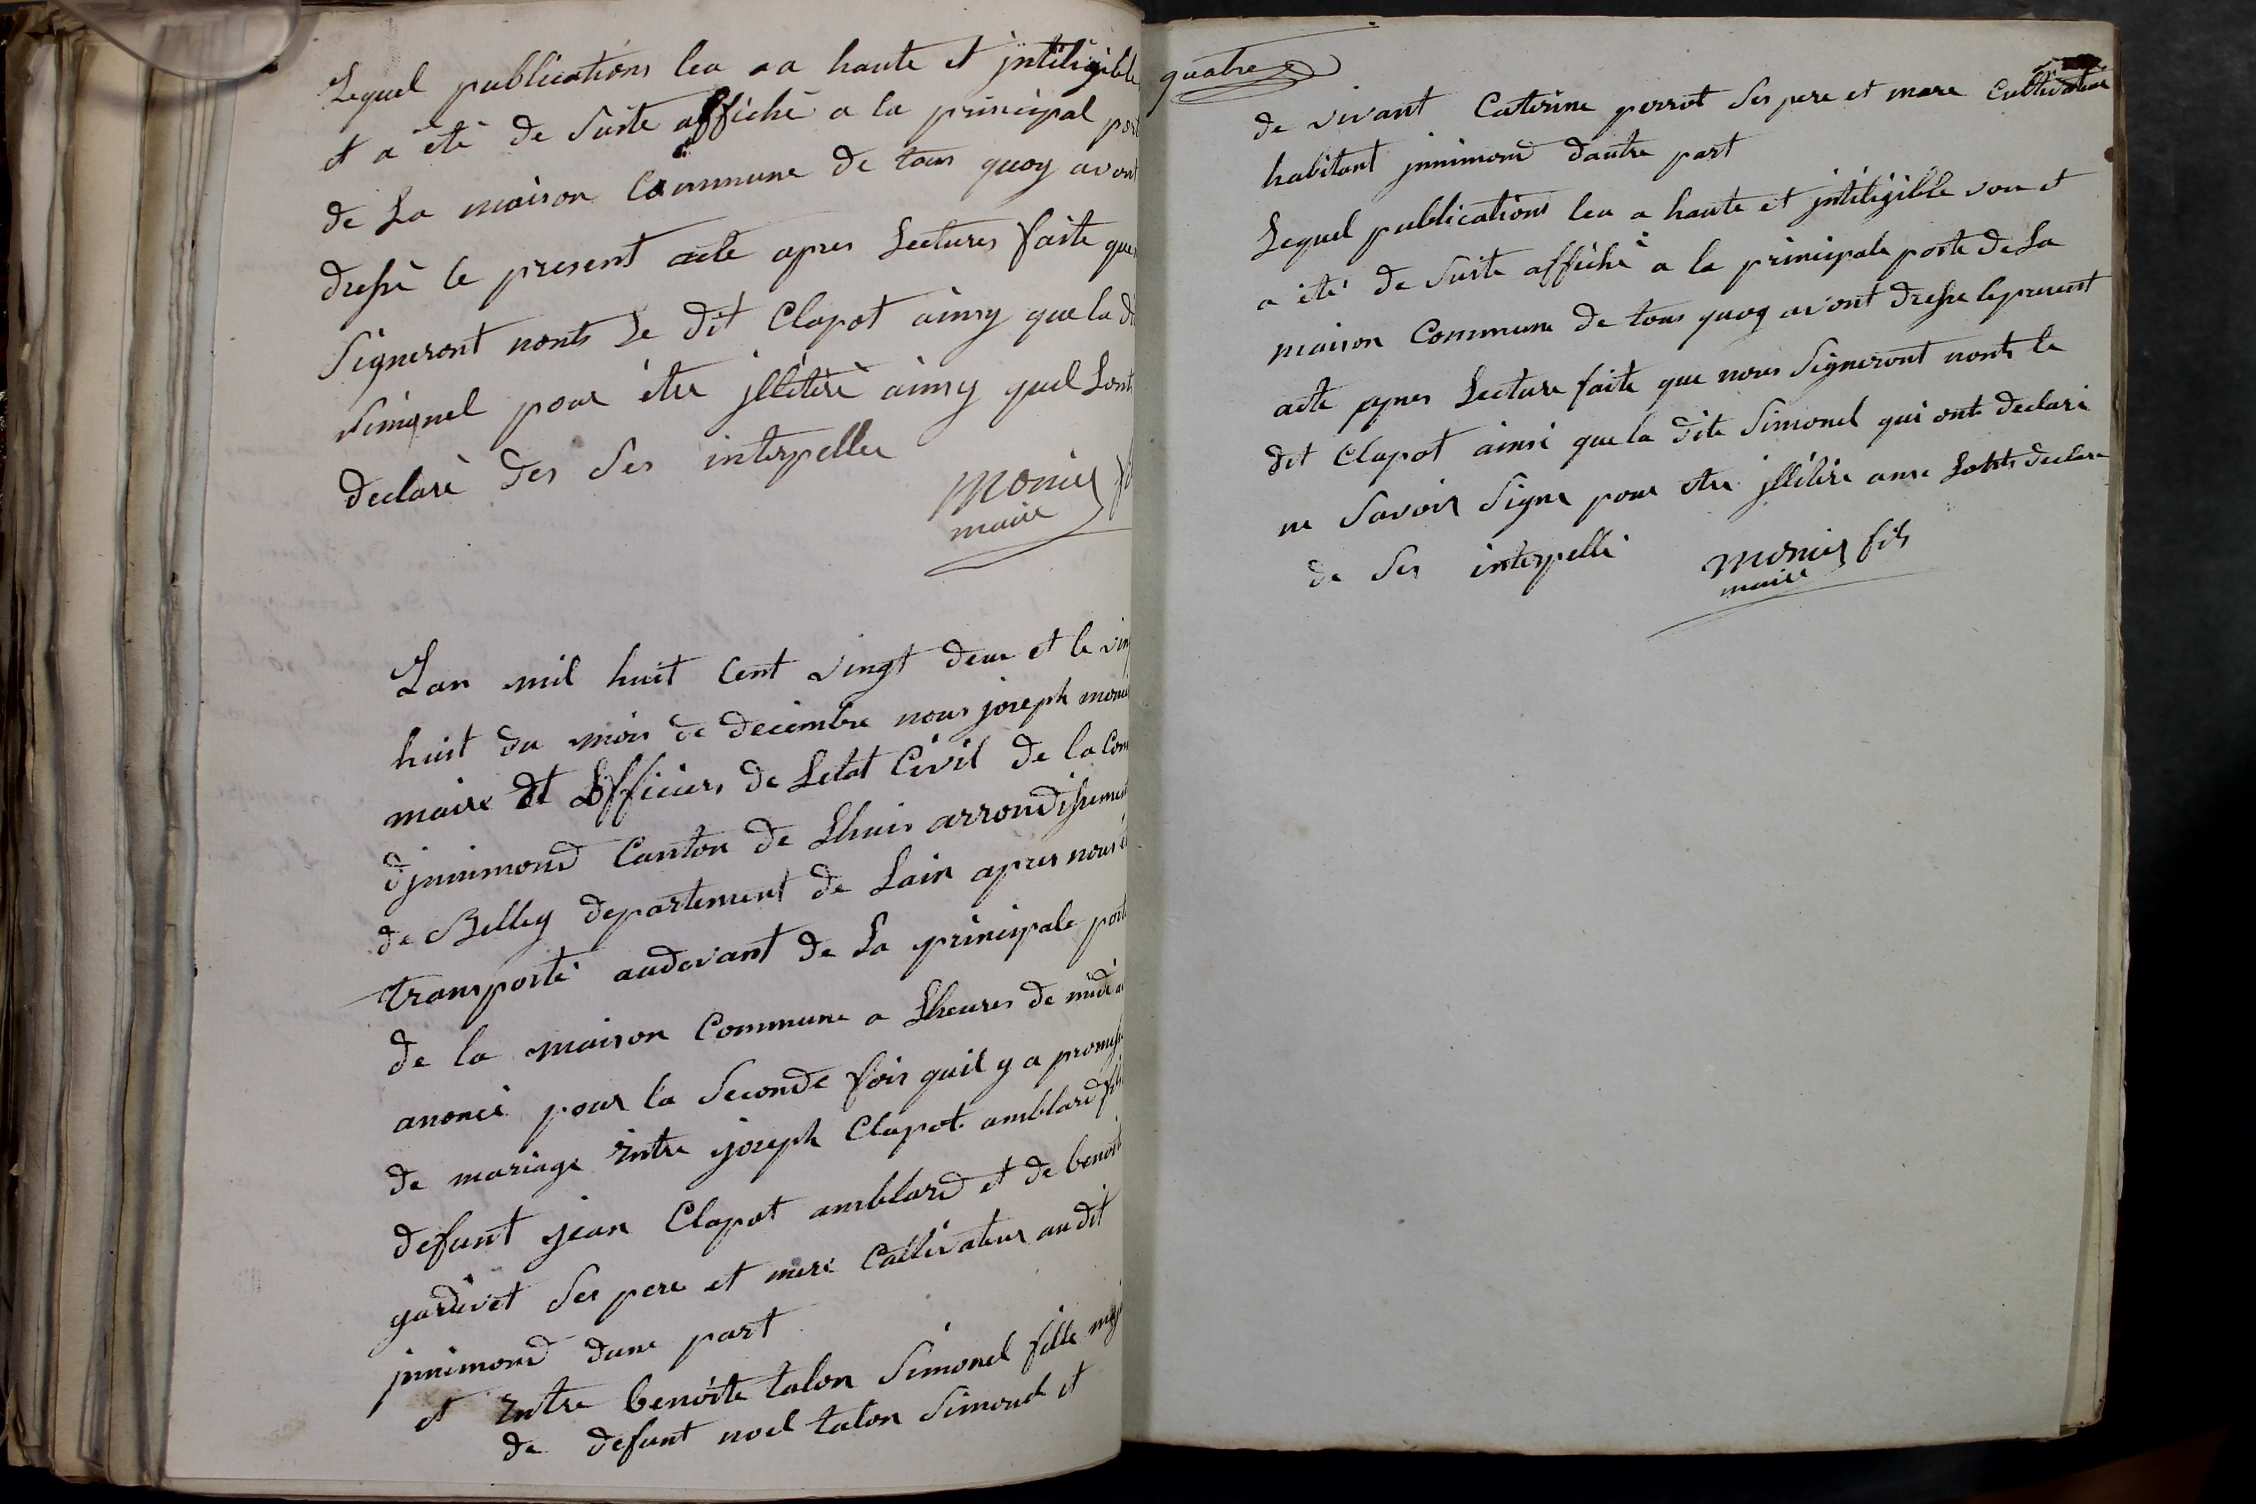 Lequel publications leu a a haute et jntiligible
et a été de Suite affiché a la principal port
de La maison Commune de tous quoy avont
dressé le present acte apres Lectures faite que
Signeront nonts Le dit Clapot ainsy que la di
Simonel pour étre jllétéré ainsy quel Lont
declaré des Ses interpeller
monier
maire
Lan mil huit Cent vingt deux et le vin
huit du mois de decembre nous joseph moni
maire et Lofficiers de Letat Civil de la Com
djnnimond Canton de Lhuis arrondissement
de Belley departement de Lain apres nous é
transporté audevant de La principale porte
de la maison Commune a Lheures de midi a
anoncé pour la Seconde fois quil y a promesse
de mariage Entre joseph Clapot amblard fils
defunt jean Clapot amblard et de benoit
gardivet Ses pere et mere Cultivateur audit
jnnimond dune part
et Entre benoite talon Simonel fille maj
de defunt noel talon Simonel et
quatre
de vivant Caterine perrot Ses pere et mere Cultivateur
habitant jnnimond dautre part
Lequel publications leu a haute et jntiligible voix et
a été de Suite affiché a la principale porte de La
maison Commune de tous quoy avont dresse le present
acte apres Lecture faite que nous Signeront nonts le
dit Clapot ainsi que la dite Simonel qui onts declaré
ne Savoir Signe pour etre jllitéré Lonts declare
de Ses interpellé
monier fils
maire